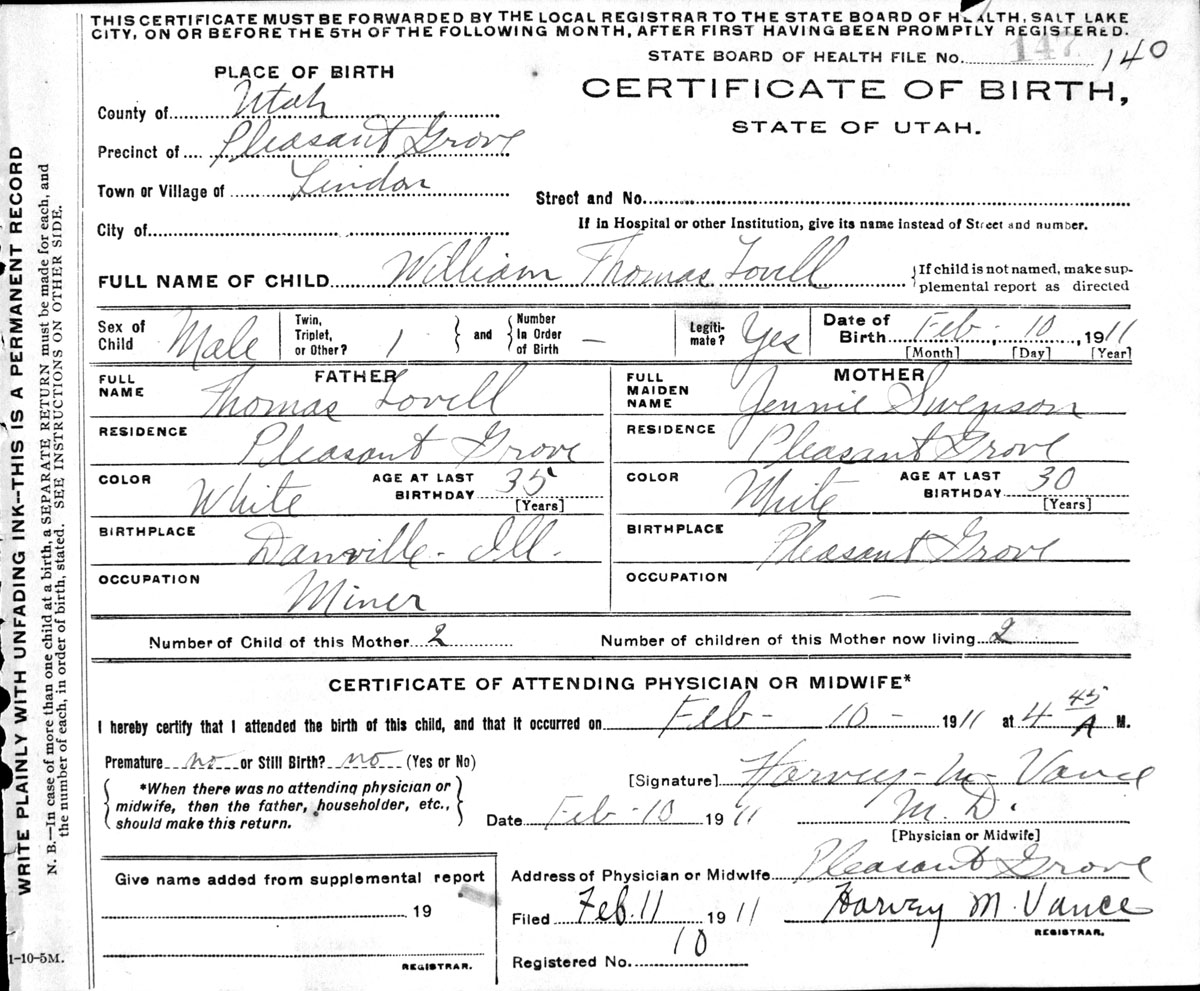 THIS CERTIFICATE MUST BE FORWARDED BY THE LOCAL REGISTRAR TO THE STATE BOARD OF HEALTH, SALT LAKE
CITY, ON OR BEFORE THE 5TH OF THE FOLLOWING MONTH, AFTER FIRST HAVING BEEN PROMPTLY REGISTERED.
STATE BOARD OF HEALTH FILE No. 147 140
PLACE OF BIRTH
CERTIFICATE OF BIRTH,
STATE OF UTAH.
County of Utah
Precinct of Pleasant Grove
Town or Village of Lindon
Street and No.
City of
If in Hospital or other Institution, give its name instead of Street and number.
FULL NAME OF CHILD William Thomas Lovell
If child is not named, make sup-
plemental report as directed
Sex of Child Male
Twin, Triplet, or Other? 1 and Number In Order of Birth –
Legiti-mate? Yes
Date of Birth Feb. 10, 1911
[Month] [Day] [Year]
FATHER
FULL NAME Thomas Lovell
MOTHER
FULL MAIDEN NAME Jennie Swenson
RESIDENCE Pleasant Grove
RESIDENCE Pleasant Grove
COLOR White AGE AT LAST BIRTHDAY 35 [Years]
COLOR White AGE AT LAST BIRTHDAY 30 [Years]
BIRTHPLACE Danville - Ill.
BIRTHPLACE Pleasant Grove
OCCUPATION Miner
OCCUPATION –
Number of Child of this Mother 2 Number of children of this Mother now living 2
CERTIFICATE OF ATTENDING PHYSICIAN OR MIDWIFE*
I hereby certify that I attended the birth of this child, and that it occurred on Feb - 10 - 1911 at 4 45 A M.
Premature no or Still Birth? no (Yes or No)
*When there was no attending physician or
midwife, then the father, householder, etc.,
should make this return.
[Signature] Harvey - M - Vance
M. D.
Date Feb - 10 1911
[Physician or Midwife]
Address of Physician or Midwife Pleasant Grove
Give name added from supplemental report
19
REGISTRAR.
Filed Feb. 11 1911 Harvey M. Vance
REGISTRAR.
Registered No. 10
WRITE PLAINLY WITH UNFADING INK--THIS IS A PERMANENT RECORD
N. B.—In case of more than one child at a birth, a SEPARATE RETURN must be made for each, and
the number of each, in order of birth, stated. SEE INSTRUCTIONS ON OTHER SIDE.
1-10-5M.